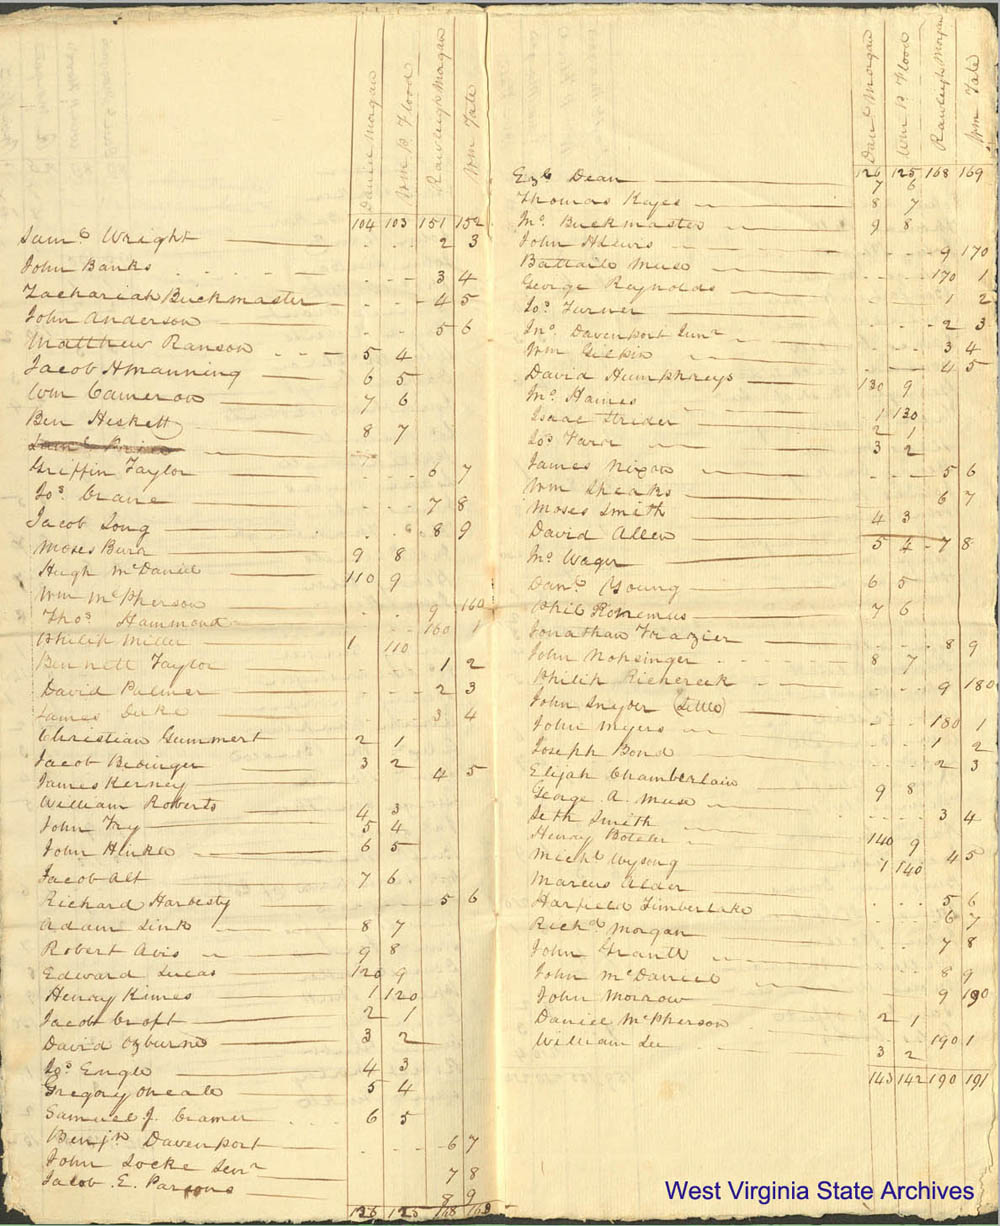 Daniel Morgan
Wm P. Flood
Rawleigh Morgan
Wm Tate
104 103 151 152
Saml Wright 2 3
John Banks 3 4
Zachariah Buckmaster 4 5
John Anderson 5 6
Matthew Ranson 5 4
Jacob H Manning 6 5
Wm Cameron 7 6
Ben Heskett 8 7
Griffin Taylor 6 7
Jos. Crane 7 8
Jacob Long 8 9
Moses Burr 9 8
Hugh McDaniel 110 9
Wm McPherson 9 160
Thos. Hammond 160 1
Philip Miller 1 110
Bennett Taylor 1 2
David Palmer 2 3
James Duke 3 4
Christian Gummert 2 1
Jacob Bedinger 3 2
James Kerney 4 5
William Roberts 4 3
John Fry 5 4
John Hinkle 6 5
Jacob Alt 7 6
Richard Hardesty 5 6
Adam Link 8 7
Robert Avis 9 8
Edward Lucas 120 9
Henry Kimes 1 120
Jacob Croft 2 1
David Ozburne 3 2
Jos. Engle 4 3
Gregory Oneale 5 4
Samuel J. Cramer 6 5
Benjn Davenport 6 7
John Locke Senr 7 8
Jacob E. Parsons 8 9
126 125 168 169
Danl Morgan
Wm P. Flood
Rawleigh Morgan
Wm Tate
126 125 168 169
Ezl Dean 7 6
Thomas Keyes 8 7
Jno. Buckmaster 9 8
John Hlewis 9 170
Battaile Muse 170 1
George Reynolds 1 2
Jos. Turner 2 3
Jno. Davenport Junr 3 4
Wm Gilpin 4 5
David Humphreys 130 9
Jno. Haines 1 130
Isaac Strider 2 1
Jos. Farr 3 2
James Nixon 5 6
Wm Speaks 6 7
Moses Smith 4 3
David Allen 5 4 7 8
Jno. Wager
Danl Young 6 5
Phil Ronemus 7 6
Jonathan Frazier 8 9
John Nopsinger 8 7
Philip Richcreek 9 180
John Snyder (Little) 180 1
John Myers 1 2
Joseph Bond 2 3
Elijah Chamberlain 9 8
George A. Muse 3 4
Seth Smith 140 9
Henry Boteler 4 5
Michl Wysong 1 140
Marcus Alder 5 6
Harfield Timberlake 6 7
Richd Morgan 7 8
John Grantt 8 9
John McDaniel 9 190
John Morrow
Daniel McPherson 2 1
William Lee 190 1
3 2
143 142 190 191
West Virginia State Archives